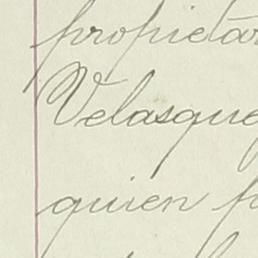 propietar
Velasque
quien f